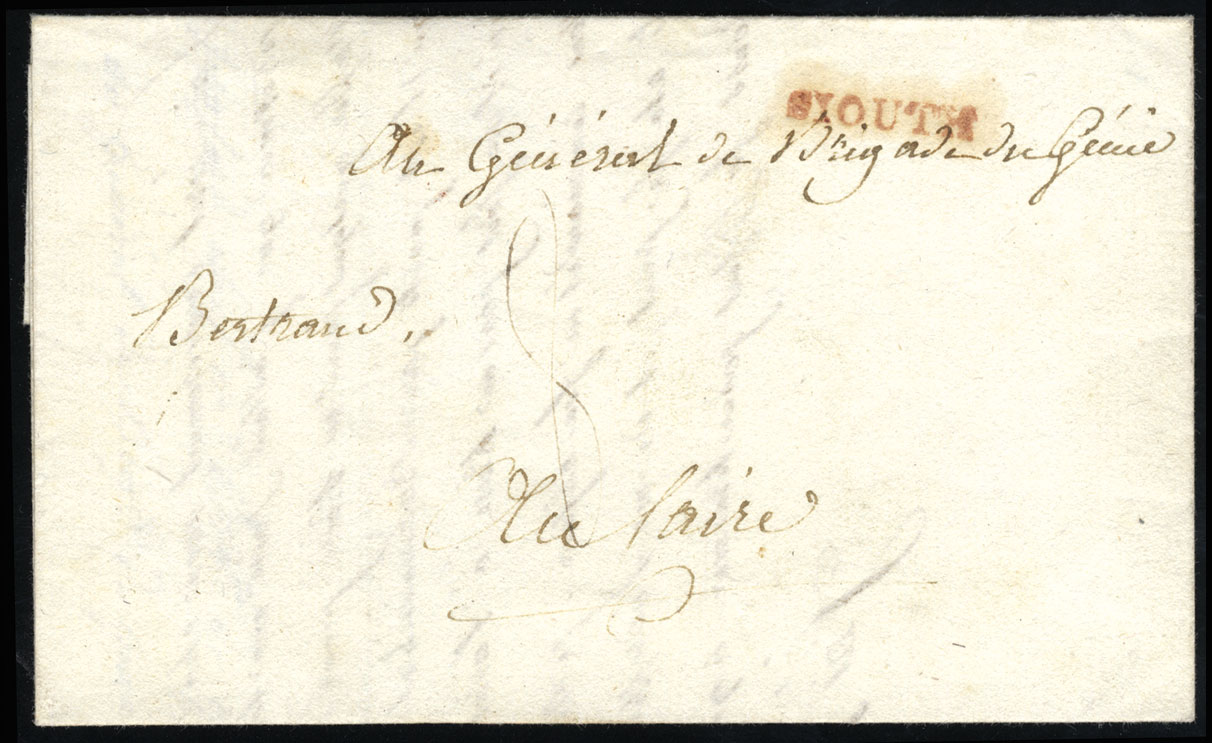 SYOUTH
Au Général de Brigade du Génie
Bertrand.
8
Au Caire